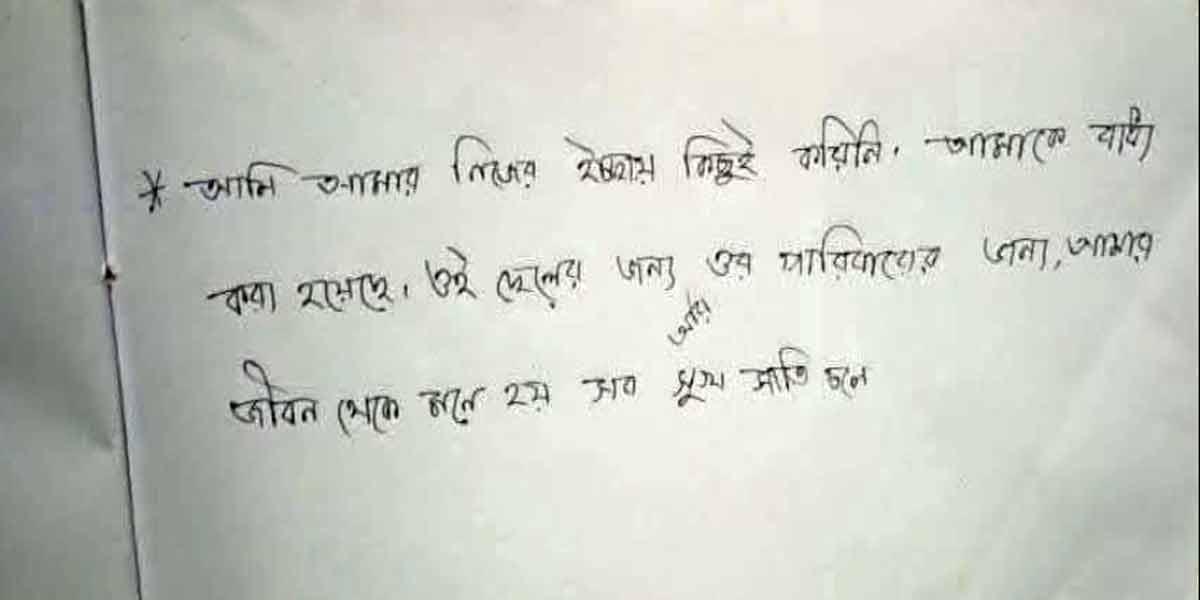 * আমি আমার নিজের ইচ্ছায় কিছুই করিনি। আমাকে বাধ্য
করা হয়েছে। ওই ছেলের জন্য ওর পারিবারের জন্য, আমার
আর
জীবন থেকে মনে হয় সব সুখ সাতি চলে